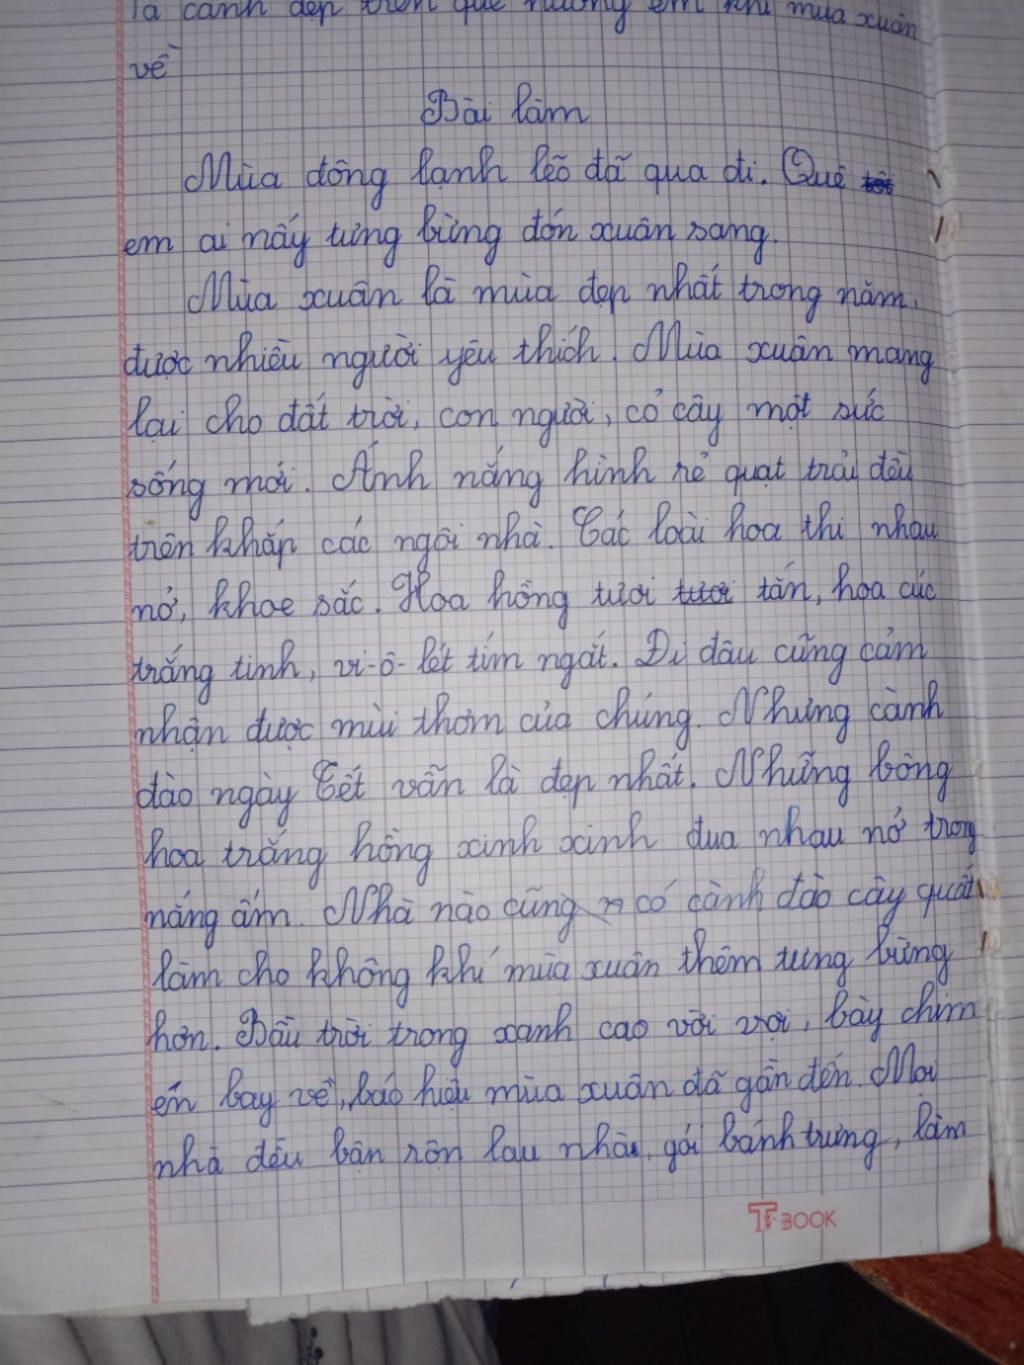 tả cảnh đẹp trên quê hương em khi mùa xuân
về
Bài làm
Mùa đông lạnh lẽo đã qua đi. Quê tôi
em ai nấy tưng bừng đón xuân sang.
Mùa xuân là mùa đẹp nhất trong năm,
được nhiều người yêu thích. Mùa xuân mang
lại cho đất trời, con người, cỏ cây một sức
sống mới. Ánh nắng hình rẻ quạt trải đều
trên khắp các ngôi nhà. Các loài hoa thi nhau
nở, khoe sắc. Hoa hồng tươi tươi tắn, hoa cúc
trắng tinh, vi-ô-lét tím ngát. Đi đâu cũng cảm
nhận được mùi thơm của chúng. Nhưng cành
đào ngày Tết vẫn là đẹp nhất. Những bông
hoa trắng hồng xinh xinh đua nhau nở trong
nắng ấm. Nhà nào cũng n có cành đào cây quất
làm cho không khí mùa xuân thêm tưng bừng
hơn. Bầu trời trong xanh cao vời vợi, bày chim
én bay về, báo hiệu mùa xuân đã gần đến. Mọi
nhà đều bận rộn lau nhà, gói bánh trưng, làm
TP BOOK